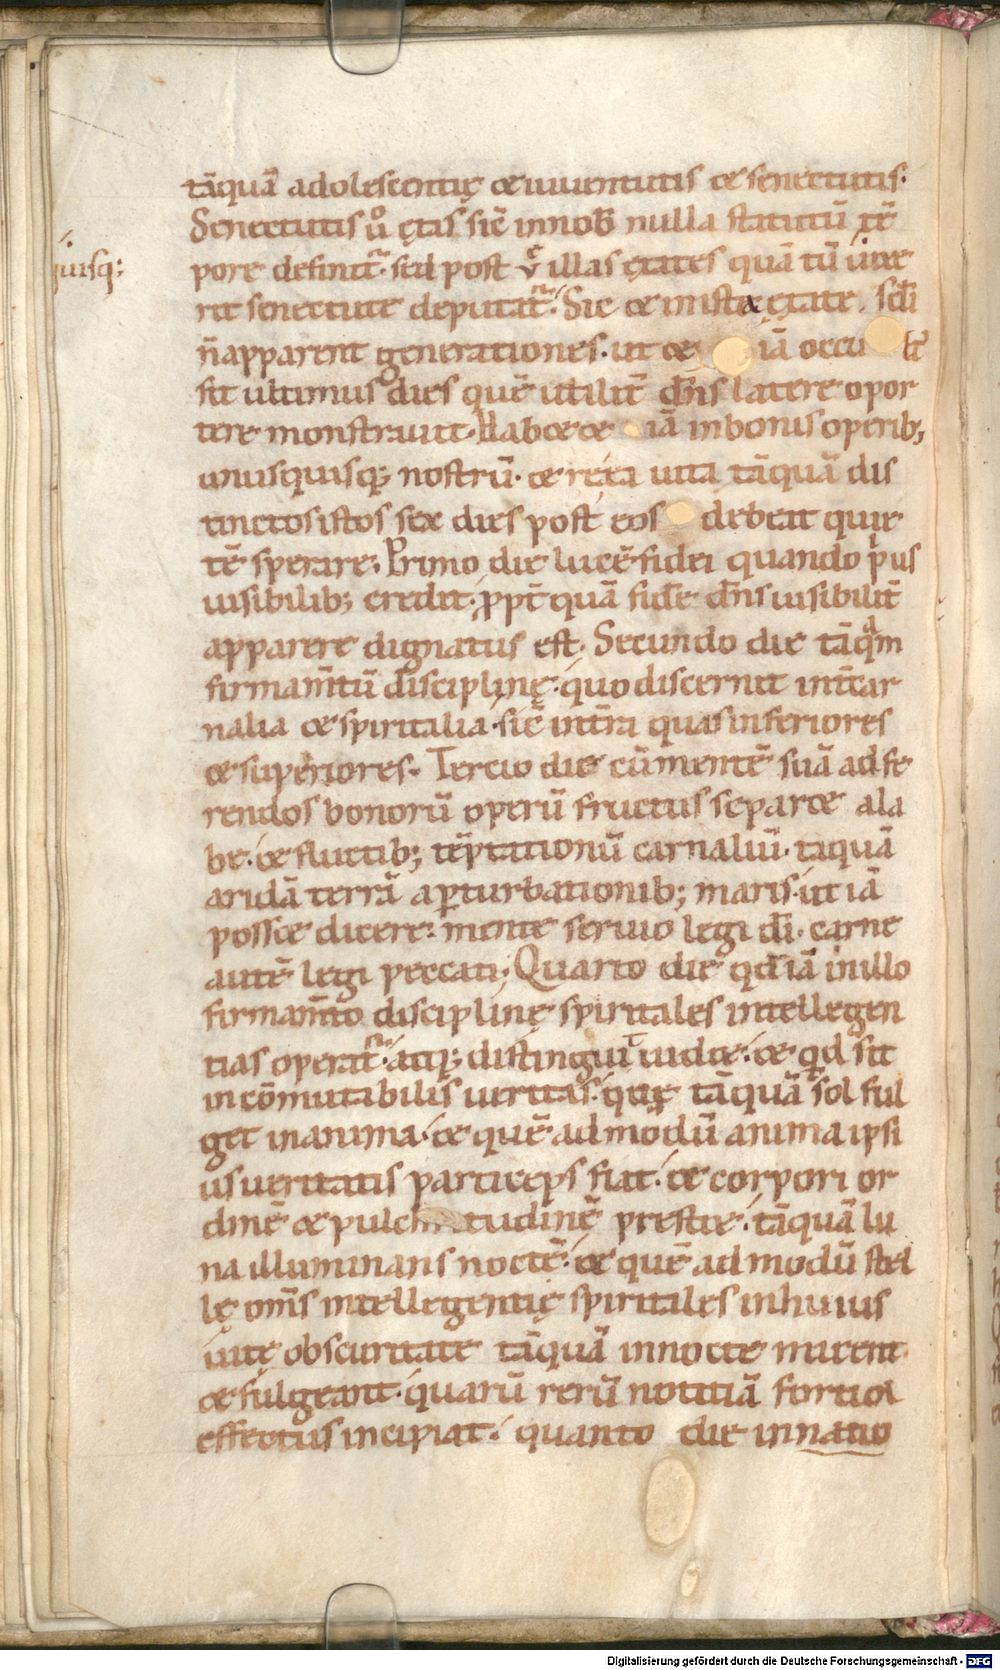 tāquā adolescentię & iuuentutis & senectutis.
Senectutis ů ętas sic̄ innob̄ nulla statutū tē
pore definit᷑. sed post v illas ętates quā tū uixe
uisq;
rit senectute deputat᷑. Sic & inista ętate. sc̄di
n̄apparent generationes. ut & iā occu lt᷑
sit ultimus dies quē utilit̄ dn̄s latere opor
tere monstrauit. Hab& & iā inbonis operib;
unusquisq; nostrū. & recta uita tāquā dis
tinctos istos sex dies post eos debeat quie
tē sperare. Primo die lucē fidei quando p̓us
uisibilib; credit. ppt̄ quā fidē dn̄s uisibilit̄
apparere dignatus est. Secundo die tāqm
firmam̄tū discipline. quo discernit int̄ car
nalia & spiritalia. sic̄ int̄ra quas inferiores
& superiores. Tercio die cū mentē suā ad fe
rendos bonorū operū fructus separ& a la
be. & fluctib; tēptationū carnaliū. taquā
aridā terrā apturbationib; maris. ut iā
poss& dicere. mente seruio legi dī. carne
autē legi peccati; Quarto die qd̄ iā inillo
firmam̄to disciplinę spiritales intellegen
tias operat᷑. atq; distingui uid&. & qd sit
incōmutabilis ueritas. quę tāquā sol ful
get inanima. & quē ad modū anima ipsi
us ueritatis particeps fiat. & corpori or
dinē & pulchritudinē prest&. tāquā lu
na illuminans noctē. & quē ad modū stel
lę om̄s intellegentię spiritales inhuius
uitę obscuritate tāquā innocte micent
& fulgeant. quarū rerū notitiā fortior
effectus incipiat. quanto die in natio
Digitalisierung gefördert durch die Deutsche Forschungsgemeinschaft - DFG